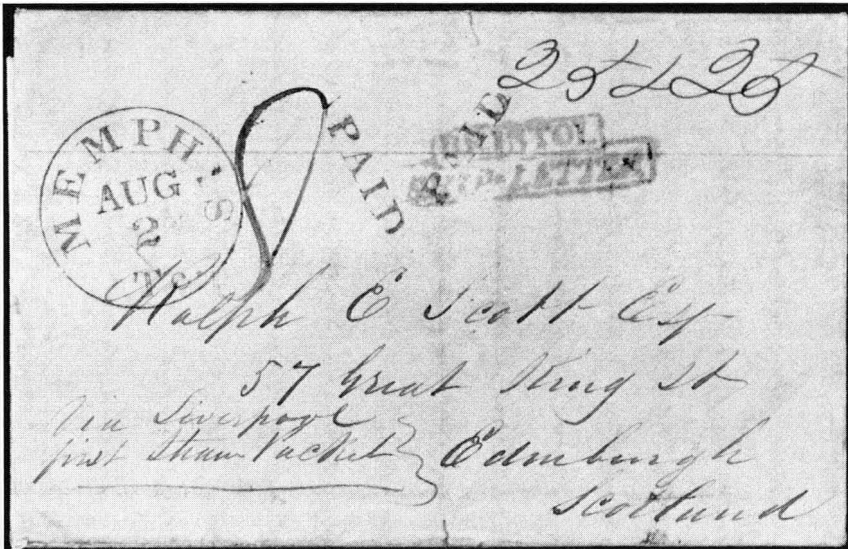 25 & 25
MEMPHIS
AUG
2
Te.
8
PAID
PAID
BRISTOL
SHIP-LETTER
Ralph E Scott Esq
57 Great King St
Via Liverpool
first Steam Packet
Edinburgh
Scotland